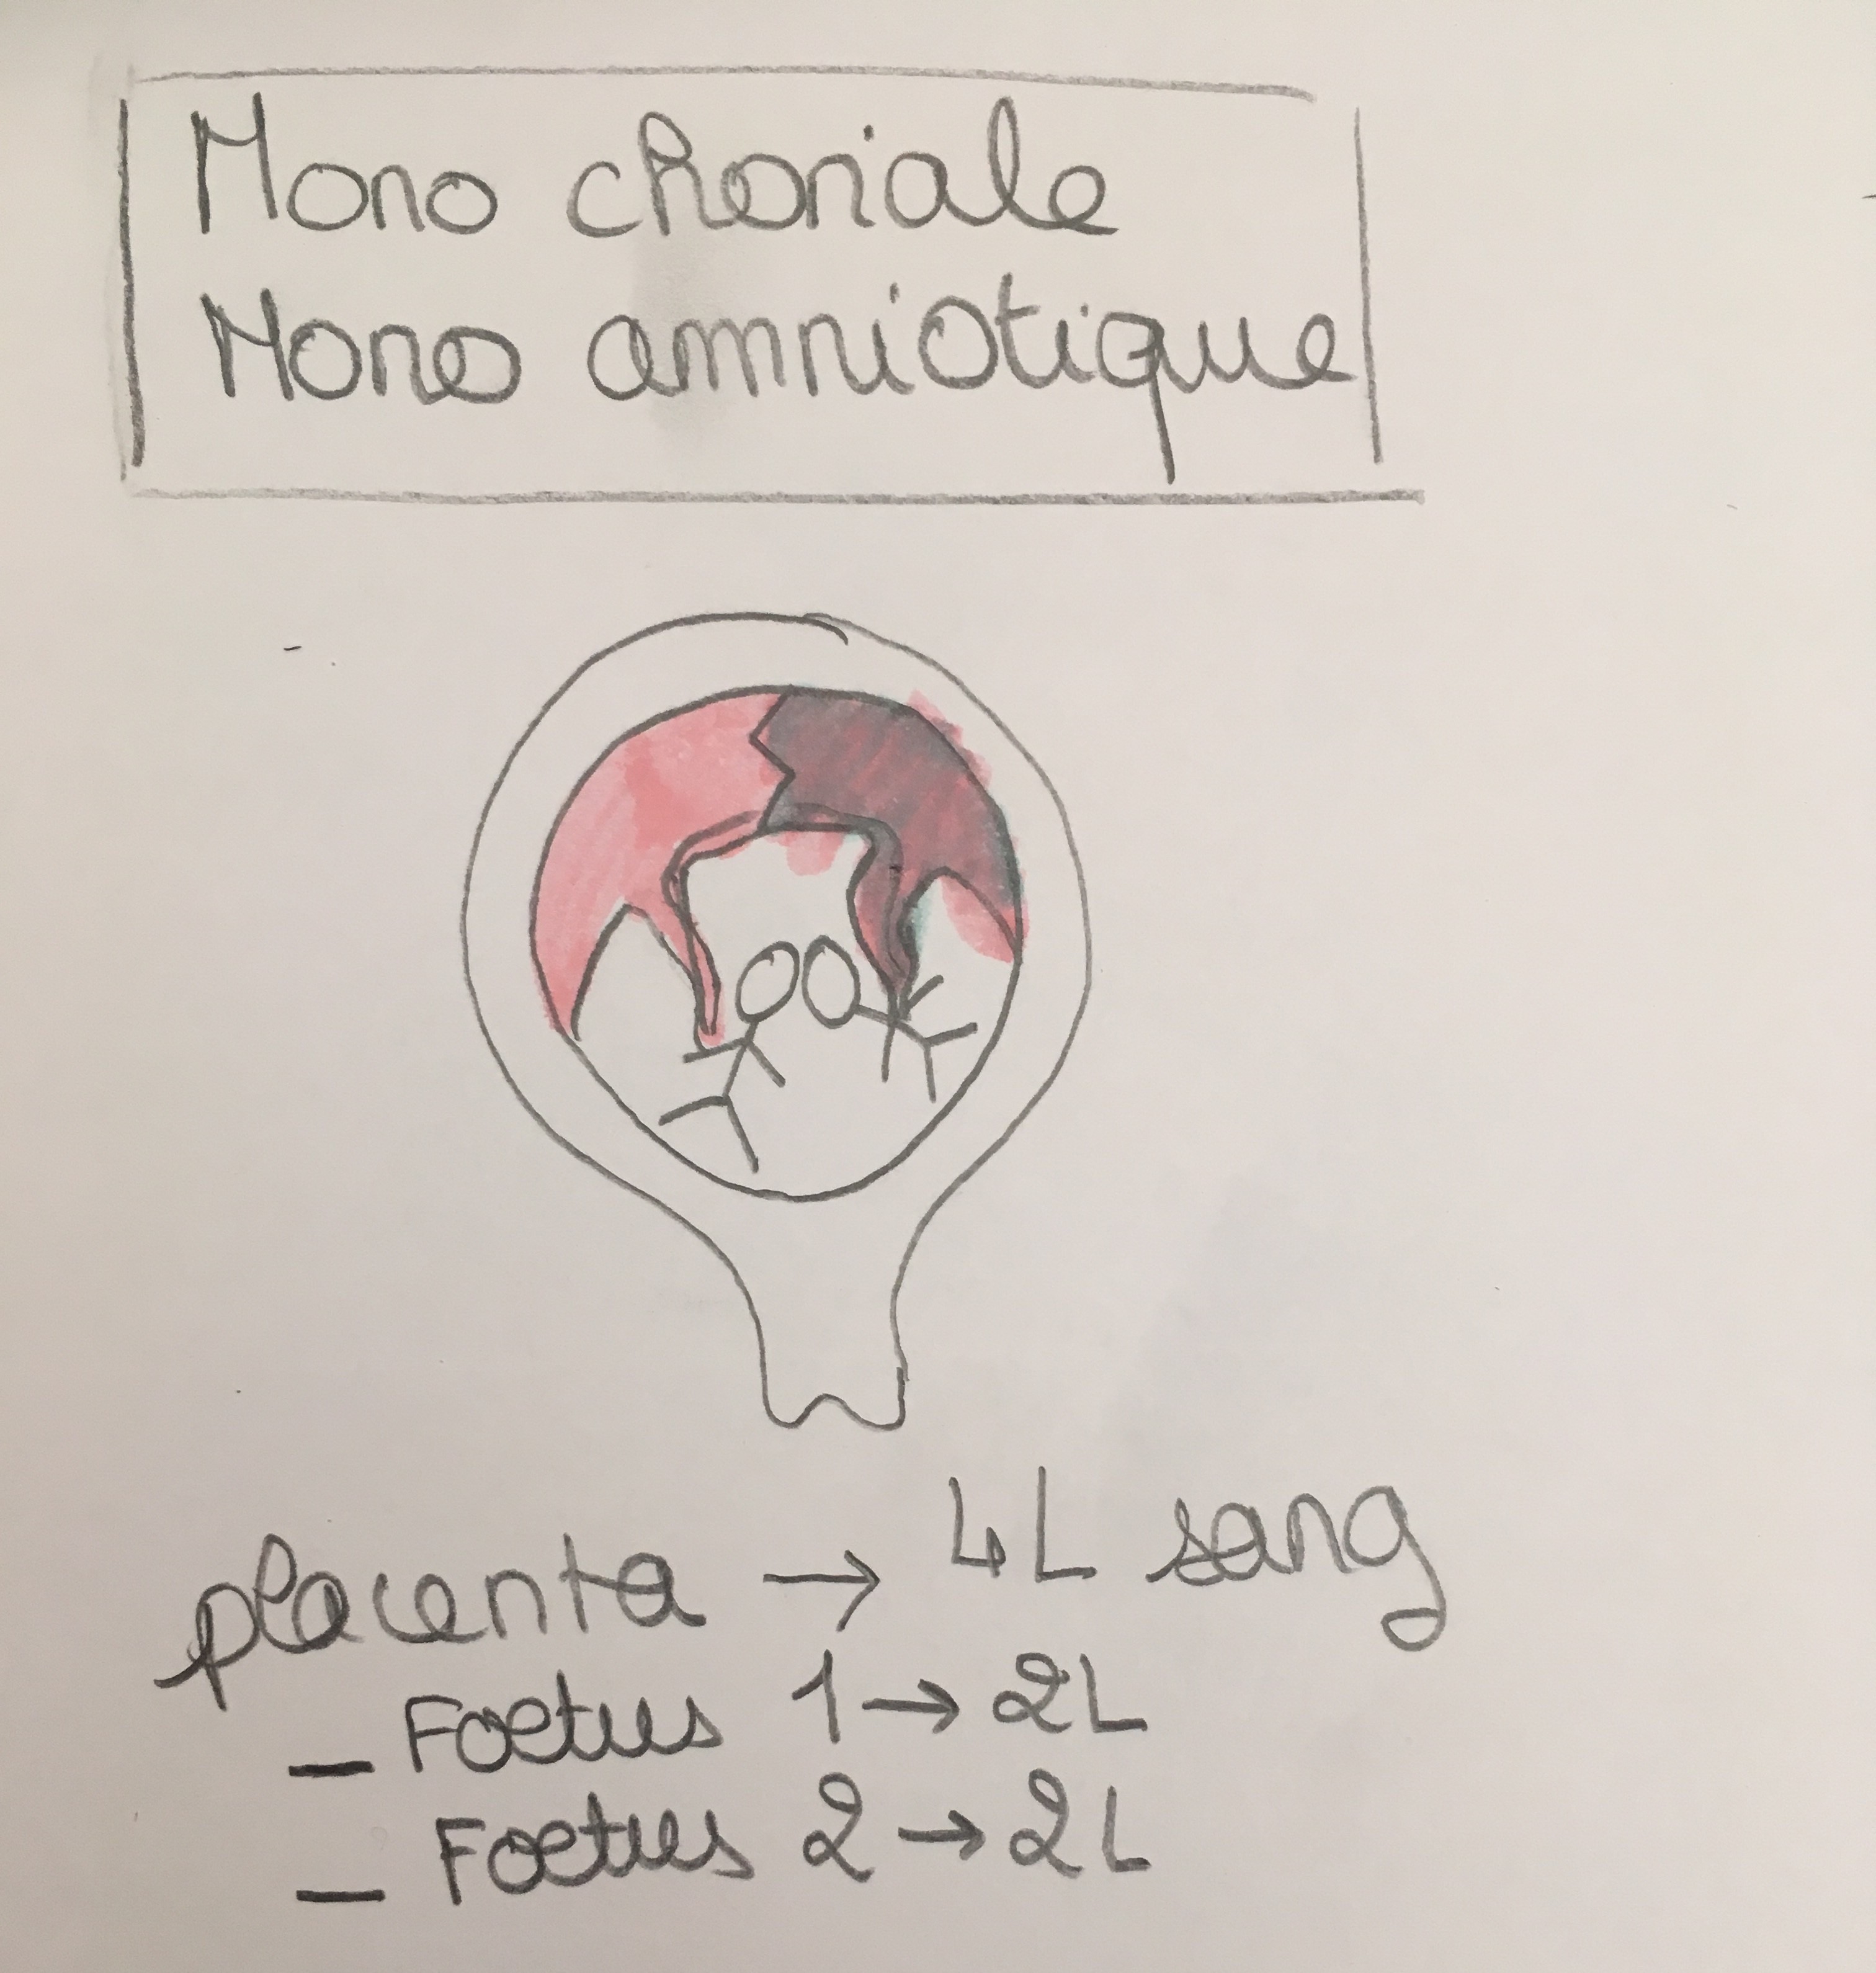 Mono choriale
Mono amniotique
placenta → 4L sang
– Foetus 1 → 2L
– Foetus 2 → 2L